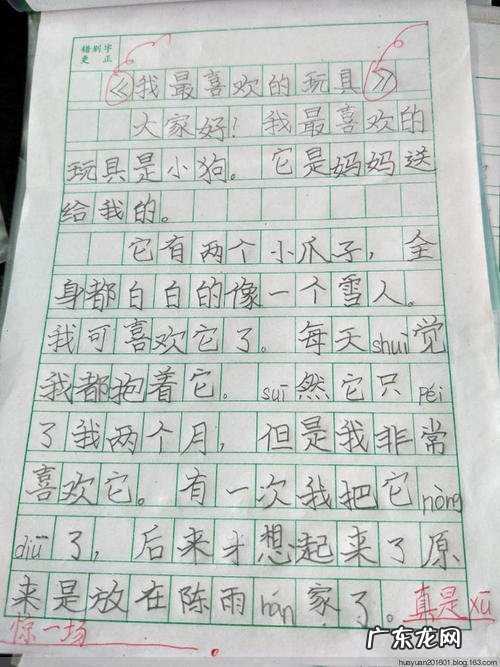 错别字
更正
《我最喜欢的玩具》
大家好！我最喜欢的
玩具是小狗。它是妈妈送
给我的。
它有两个小爪子，全
身都白白的像一个雪人。
我可喜欢它了。每天shuì觉
我都抱着它。suī然它只péi
了我两个月，但是我非常
喜欢它。有一次我把它nòng
diū了，后来才想起来了原
来是放在陈雨hán家了。真是xū
惊一场。
广东龙网
huayuan201601.blog.163.com